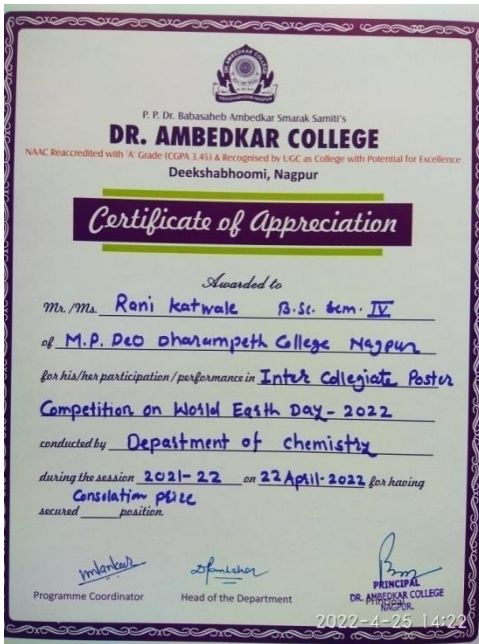 DR. AMBEDKAR COLLEGE
DEEKSHABHOOMI, NAGPUR
P. P. Dr. Babasaheb Ambedkar Smarak Samiti's
DR. AMBEDKAR COLLEGE
NAAC Reaccredited with 'A' Grade (CGPA 3.45) & Recognised by UGC as College with Potential for Excellence
Deekshabhoomi, Nagpur
Certificate of Appreciation
Awarded to
Mr./Ms. Rani Katwale B.Sc. Sem. IV
of M.P. Deo Dharampeth College Nagpur
for his/her participation/performance in Inter Collegiate Poster
Competition on World Earth Day-2022
conducted by Department of chemistry
during the session 2021-22 on 22 April-2022 for having
Consolation prize
secured position.
Programme Coordinator
Head of the Department
PRINCIPAL
DR. AMBEDKAR COLLEGE
Principal
NAGPUR.
2022-4-25 14:22